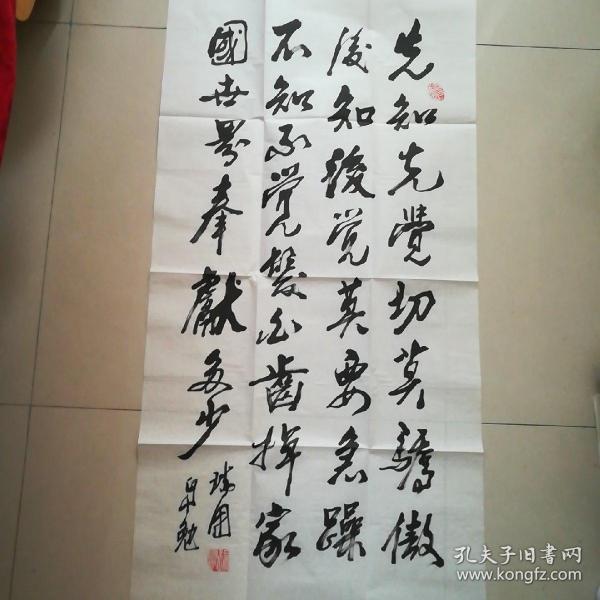 先知先覺切莫驕傲
後知後觉莫要急躁
不知不觉髮白齒掉家
國世界奉獻多少
瑞國
自勉
孔夫子旧書网
www.kongfz.com